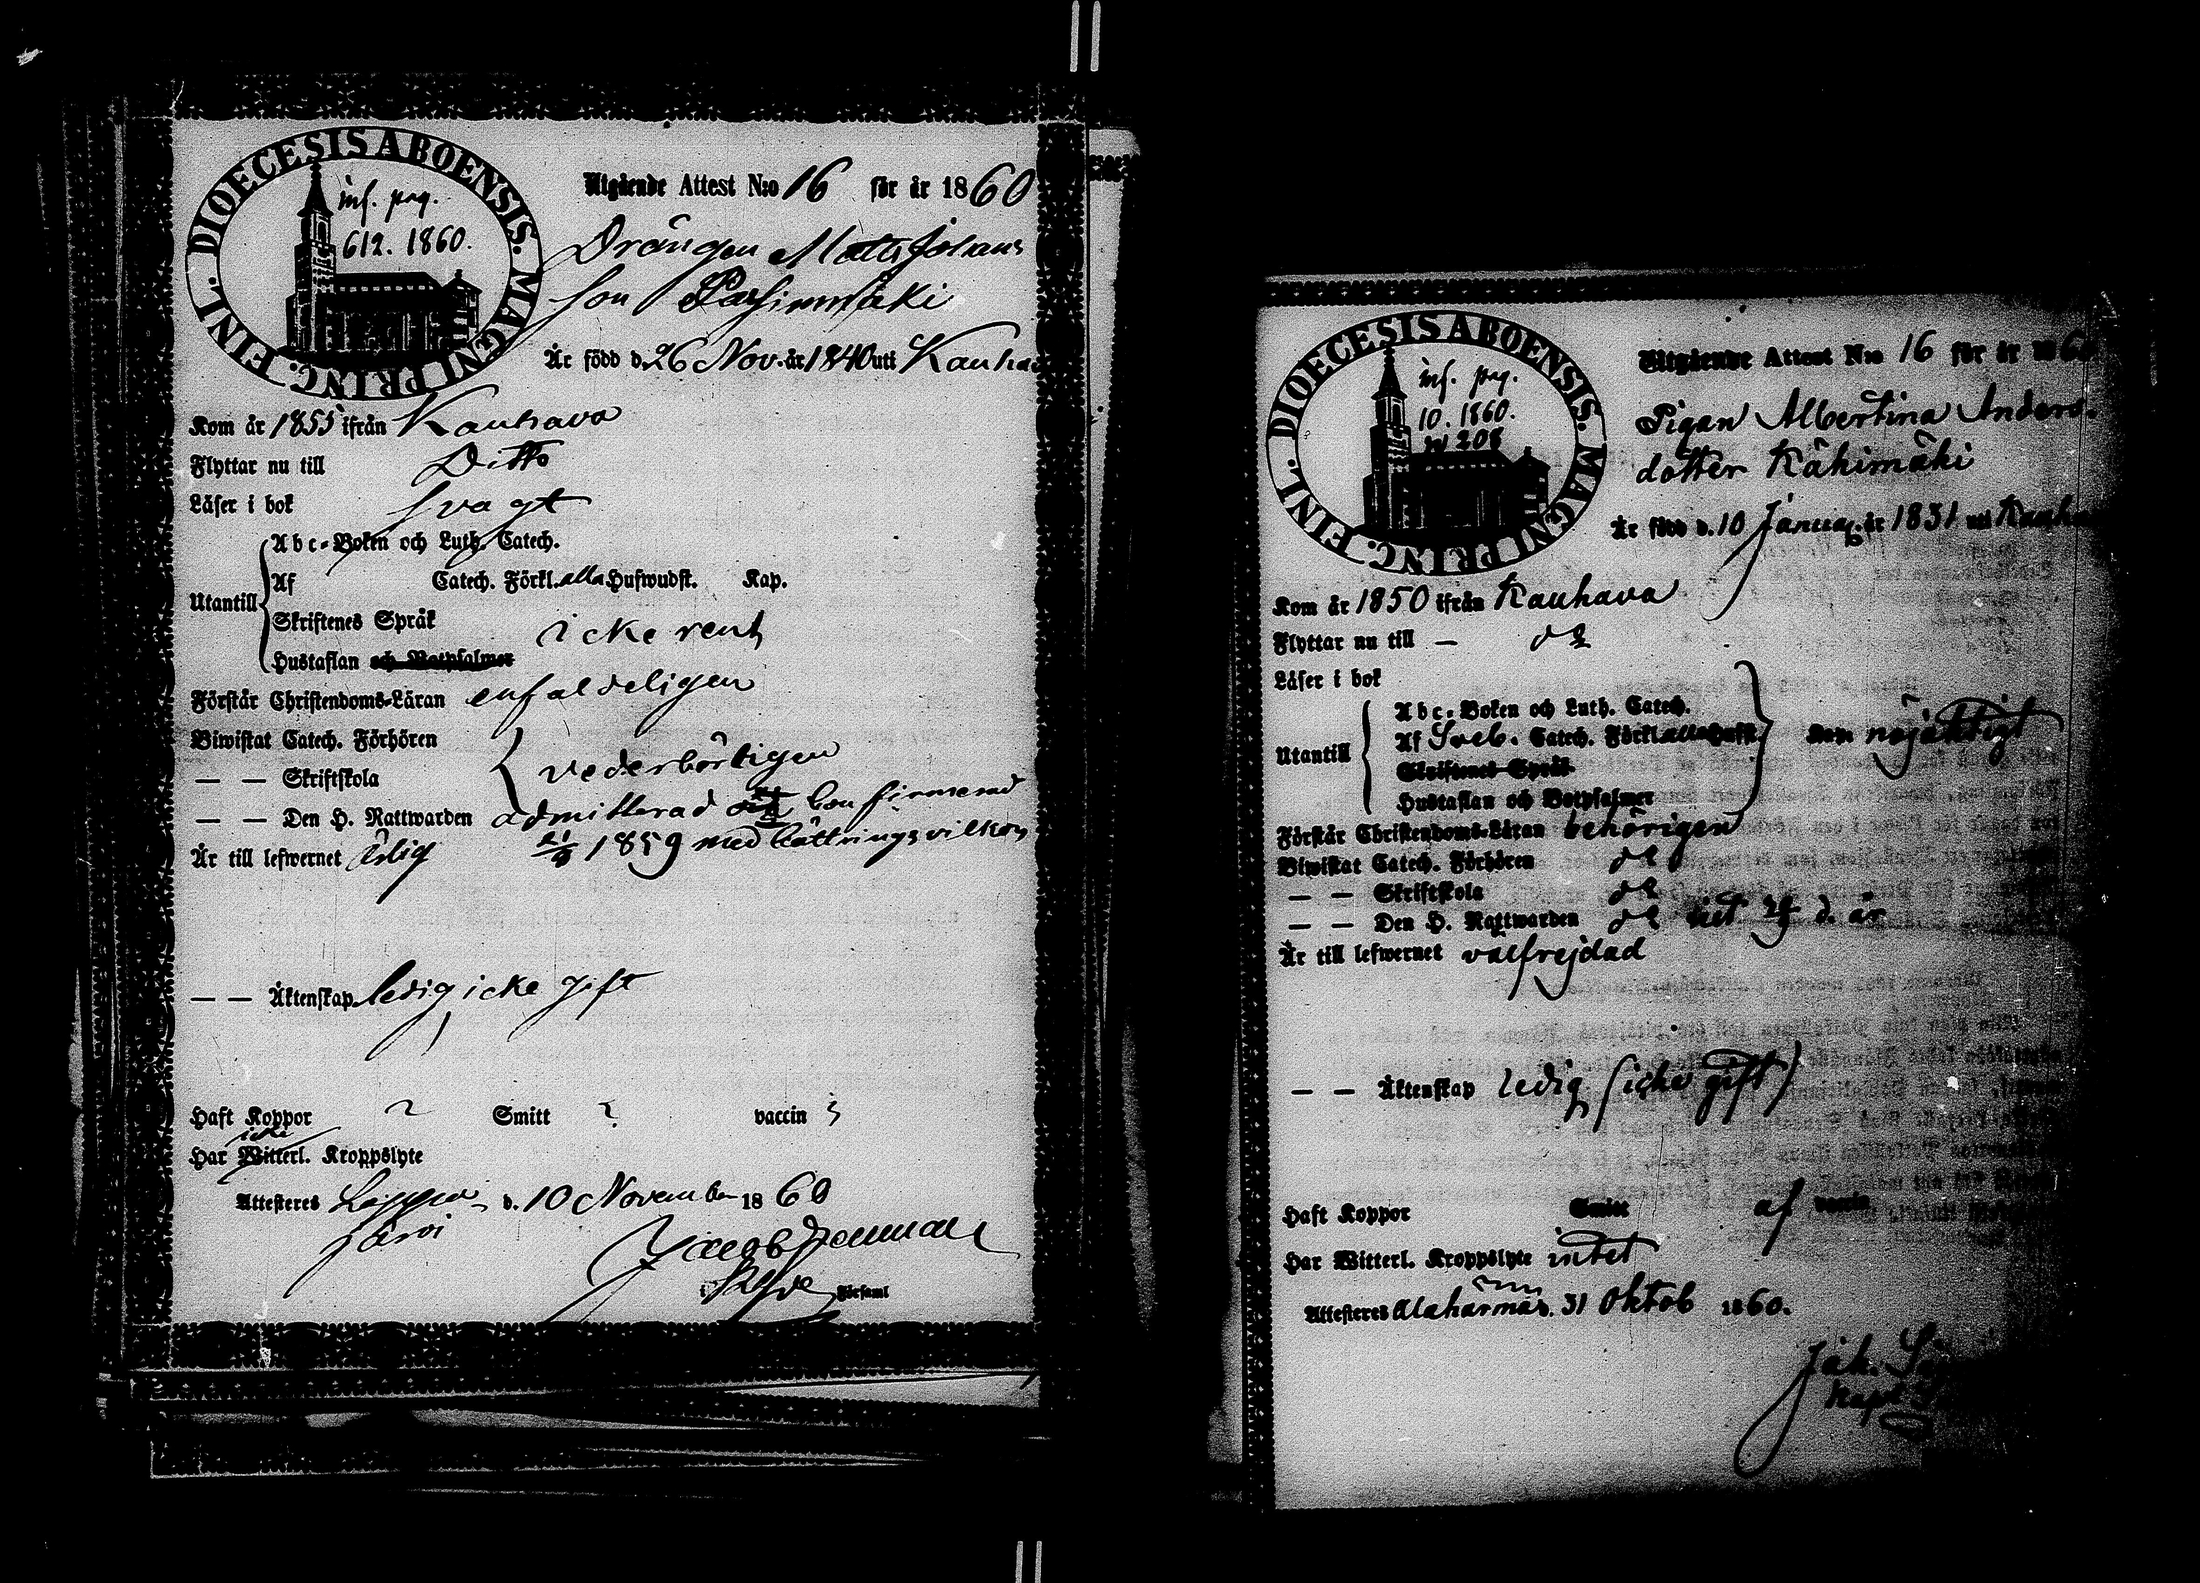 DIOECESIS ABOENSIS. MAGNI PRINC. FINL.
inf. pag.
612. 1860.
Utgående Attest N:o 16 för år 1860
Drängen Matts Johans
son Passinmäki
Är född d. 26 Nov. år 1840 uti Kauha
Kom år 1855 ifrån Kauhava
Flyttar nu till Ditto
Läser i bok svagt
Utantill
Abc-Boken och Luth. Catech.
Af Catech. Förkl. alla Hufwudst. Kap.
Skriftenes Språk icke rent
Hustaflan och Botpsalmer
Förstår Christendoms-Läran enfaldeligen
Biwistat Catech. Förhören
— — Skriftskola vederbörligen
— — Den H. Nattwarden admitterad confirmerad
1859 med bättringsvilkor
Är till lefwernet ärlig
— — Äktenskap ledig icke gift
Haft Koppor ? Smitt ? vaccin ?
icke
Har Witterl. Kroppslyte
Attesteras Lappo- d. 10 November 1860
järvi
Jacob
i Församl
DIOECESIS ABOENSIS. MAGNI PRINC. FINL.
inf. pag.
10. 1860.
N 208
Utgående Attest N:o 16 för år 1860
Pigan Albertina Anders-
dotter Kähimäki
Är född d. 10 Januar. år 1831 uti Kauha
Kom år 1850 ifrån Kauhava
Flyttar nu till — do
Läser i bok
Utantill
Abc-Boken och Luth. Catech.
Af Sveb. Catech. Förkl. alla Hufst. Kap. nöjaktigt
Skriftenes Språk
Hustaflan och Botpsalmer
Förstår Christendoms-Läran behörigen
Biwistat Catech. Förhören do
— — Skriftskola do
— — Den H. Nattwarden do d. år
Är till lefwernet välfrejdad
— — Äktenskap ledig (icke gift)
Haft Koppor Smitt af vaccin
Har Witterl. Kroppslyte intet
Attesteras Alahärmä d. 31 Oktob 1860.
Joh.
Kapl.